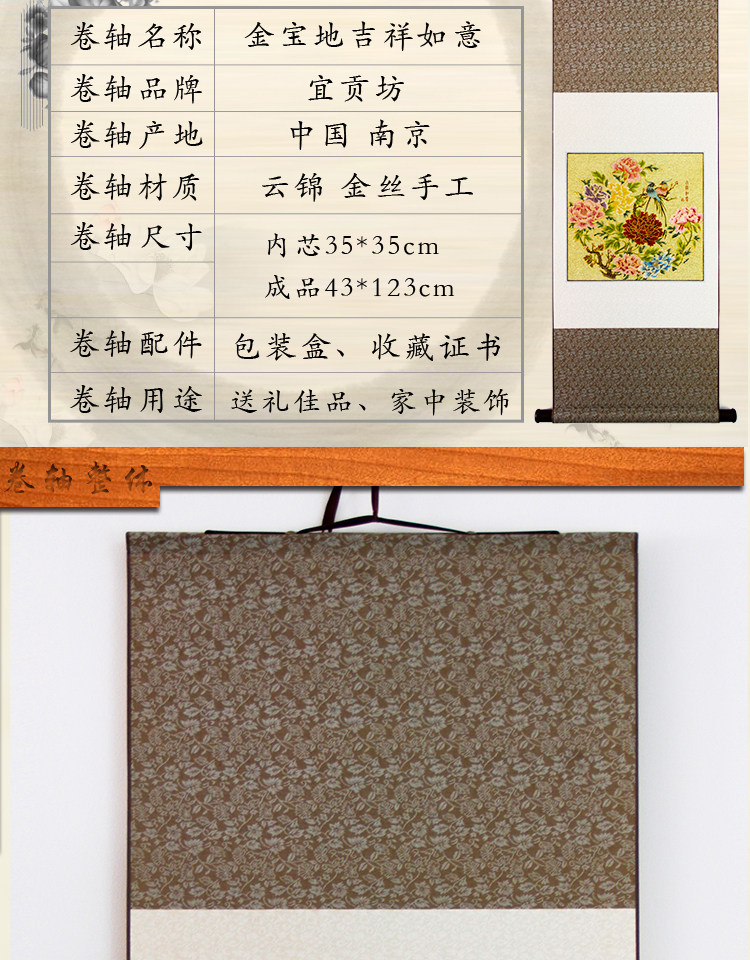 卷轴名称 金宝地吉祥如意
卷轴品牌 宜贡坊
卷轴产地 中国 南京
卷轴材质 云锦 金丝手工
卷轴尺寸 内芯35*35cm
成品43*123cm
卷轴配件 包装盒、收藏证书
卷轴用途 送礼佳品、家中装饰
卷轴整体